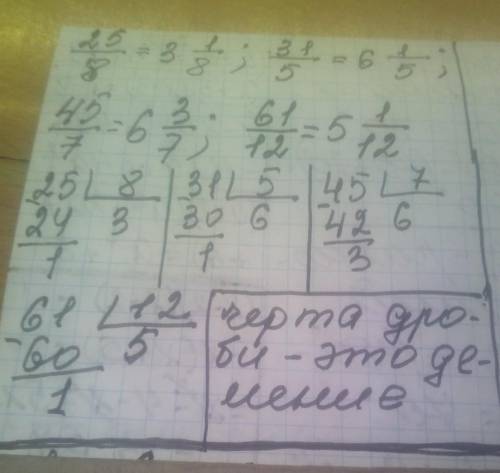 25/8 = 3 1/8 ; 31/5 = 6 1/5 ;
45/7 = 6 3/7 ; 61/12 = 5 1/12
-25 | 8
24 3
1
-31 | 5
30 6
1
-45 | 7
42 6
3
-61 | 12
60 5
1
черта дро-
би - это де-
ление